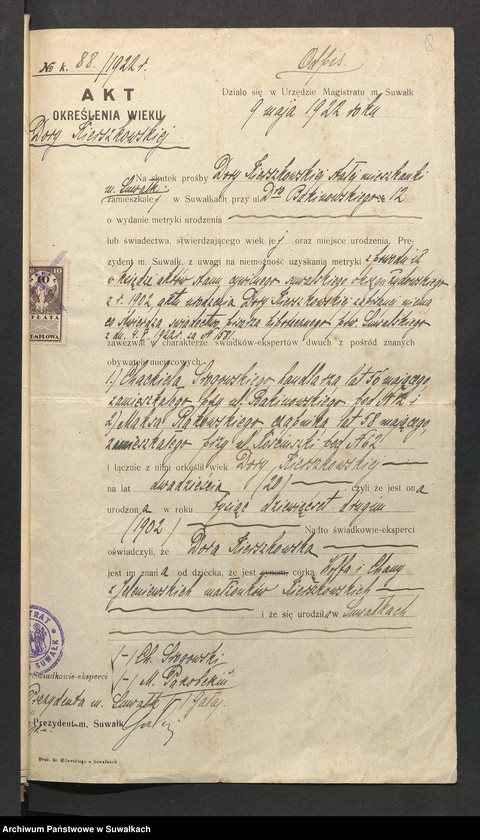 8
№ k. 88./1922 r.
Odpis.
AKT
OKREŚLENIA WIEKU
Dory Kierszkowskiej
Działo się w Urzędzie Magistratu m. Suwałk
9 maja 1922 roku
Na skutek prośby Dory Kierszkowskiej stałej mieszkanki
m. Suwałki
zamieszkałej w Suwałkach przy ul. Bakinowskiego 12
o wydanie metryki urodzenia
lub świadectwa, stwierdzającego wiek jej oraz miejsce urodzenia, Pre-
zydent m. Suwałk, z uwagi na niemożność uzyskania metryki z powodu iż
w księdze aktów stanu cywilnego suwalskiego okręgu
z r. 1902, aktu urodzenia Dory Kierszkowskiej niema
co stwierdza świadectwo pow. Suwalskiego
z dn. 4.V 1922 r. za №
zawezwał w charakterze świadków-ekspertów dwuch z pośród znanych
obywateli miejscowych
1) Chackiela Srogowskiego handlarza lat 56 mającego,
zamieszkałego przy ul. Bakinowskiego pod № 12 i
2) czapnika, lat 58 mającego,
zamieszkałego przy ul. Kościuszki pod № 62
i łącznie z nimi określił wiek Dory Kierszkowskiej
na lat dwadzieścia (20) czyli że jest ona
urodzona w roku tysiąc dziewięćset drugim
(1902) Nadto świadkowie-eksperci
oświadczyli, że Dora Kierszkowska
jest im znana od dziecka, że jest synem, córką Wolfa i Chany
z Jeleniewskich małżonków Kierszkowskich
i że się urodziła w Suwałkach
Świadkowie-eksperci
(-) Ch. Srogowski
(-) M.
Prezydenta m. Suwałk
Prezydent m. Suwałk
Druk. St. Milewskiego w Suwałkach
10
10
OPŁATA
STEMPLOWA
Archiwum Państwowe w Suwałkach